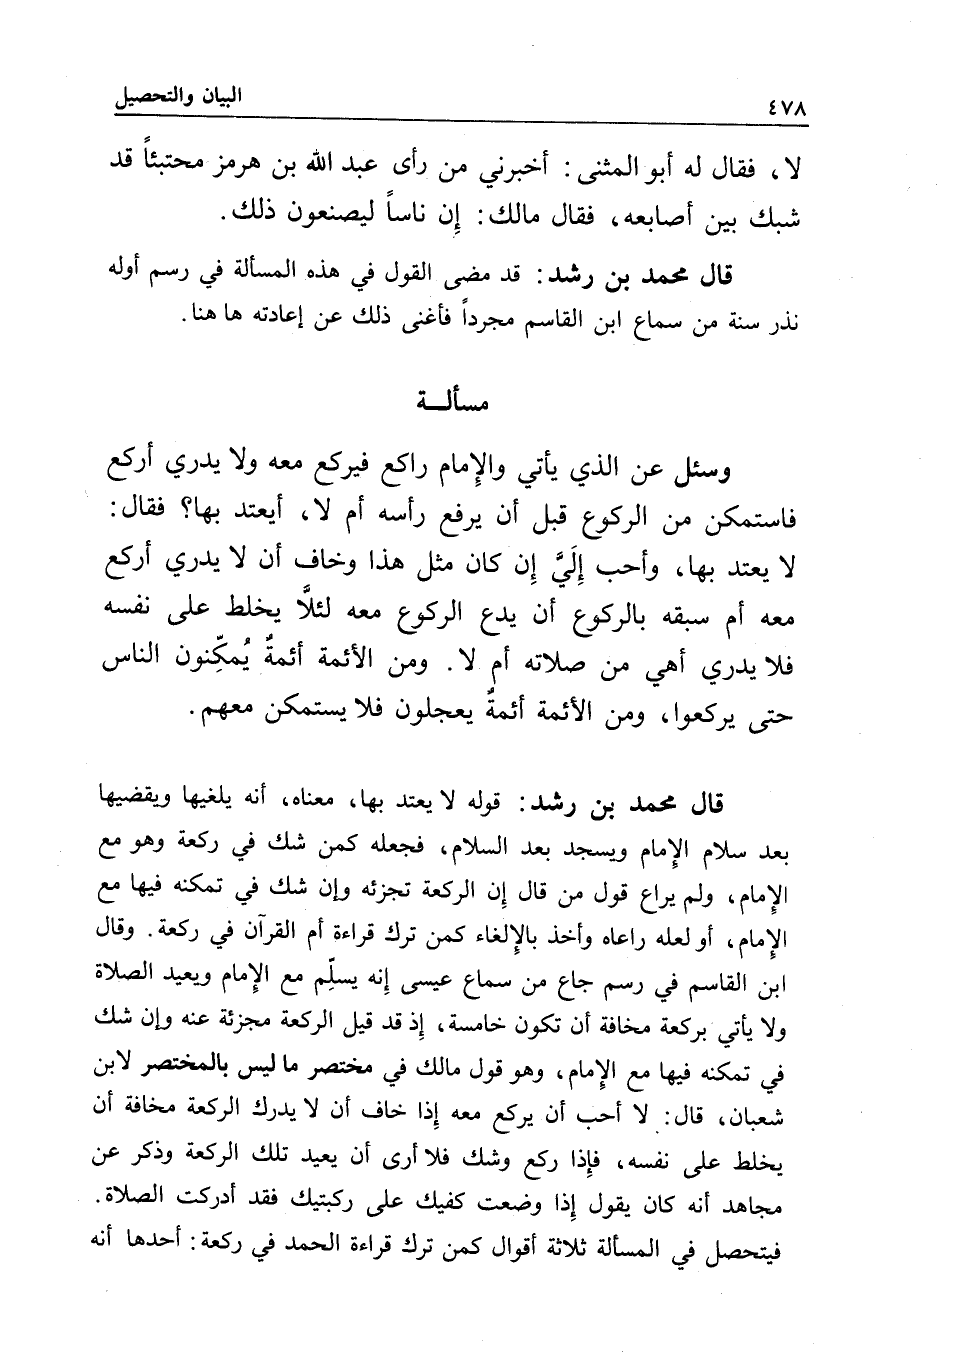 ٤٧٨
البيان والتحصيل
لا، فقال له أبو المثنى: أخبرني من رأى عبد الله بن هرمز محتبئاً قد
شبك بين أصابعه، فقال مالك: إن ناساً ليصنعون ذلك.
قال محمد بن رشد: قد مضى القول في هذه المسألة في رسم أوله
نذر سنة من سماع ابن القاسم مجرداً فأغنى ذلك عن إعادته ها هنا.
مسألــة
وسئل عن الذي يأتي والإمام راكع فيركع معه ولا يدري أركع
فاستمكن من الركوع قبل أن يرفع رأسه أم لا، أيعتد بها؟ فقال:
لا يعتد بها، وأحب إِلَيَّ إن كان مثل هذا وخاف أن لا يدري أركع
معه أم سبقه بالركوع أن يدع الركوع معه لئلَّا يخلط على نفسه
فلا يدري أهي من صلاته أم لا. ومن الأئمة أئمةٌ يُمكِّنون الناس
حتى يركعوا، ومن الأئمة أئمةٌ يعجلون فلا يستمكن معهم.
قال محمد بن رشد: قوله لا يعتد بها، معناه، أنه يلغيها ويقضيها
بعد سلام الإمام ويسجد بعد السلام، فجعله كمن شك في ركعة وهو مع
الإمام، ولم يراع قول من قال إن الركعة تجزئه وإن شك في تمكنه فيها مع
الإمام، أو لعله راعاه وأخذ بالإلغاء كمن ترك قراءة أم القرآن في ركعة. وقال
ابن القاسم في رسم جاع من سماع عيسى إنه يسلِّم مع الإمام ويعيد الصلاة
ولا يأتي بركعة مخافة أن تكون خامسة، إذ قد قيل الركعة مجزئة عنه وإن شك
في تمكنه فيها مع الإمام، وهو قول مالك في مختصر ما ليس بالمختصر لابن
شعبان، قال: لا أحب أن يركع معه إذا خاف أن لا يدرك الركعة مخافة أن
يخلط على نفسه، فإذا ركع وشك فلا أرى أن يعيد تلك الركعة وذكر عن
مجاهد أنه كان يقول إذا وضعت كفيك على ركبتيك فقد أدركت الصلاة.
فيتحصل في المسألة ثلاثة أقوال كمن ترك قراءة الحمد في ركعة: أحدها أنه